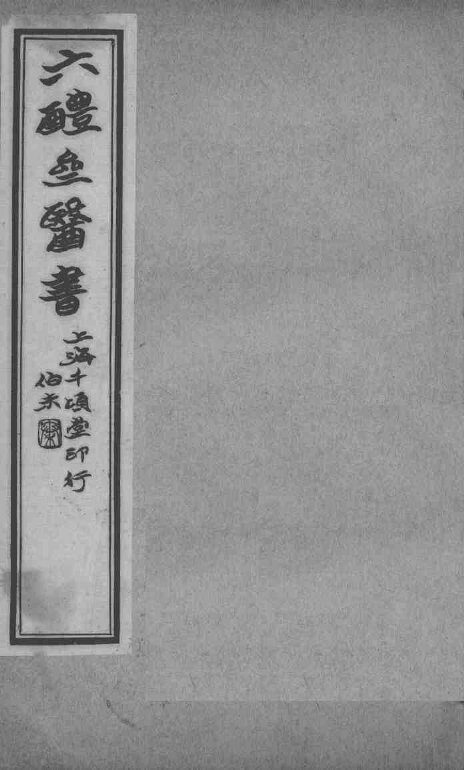 六醴齋醫書
上海千頃堂印行
伯未